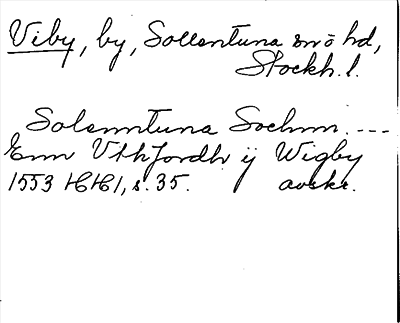 Viby, by, Sollentuna snö hd,
Stockh. l.
Solamntuna Sochnn. ---
Enn Vthjordh ij Wigby
1553 HH1, s. 35. avskr.